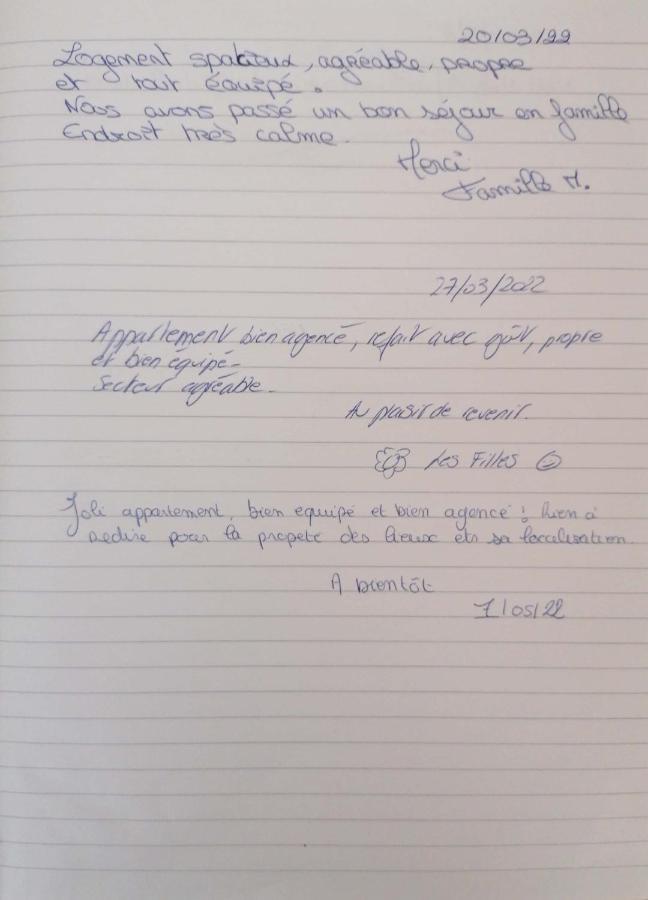 20/03/22
Logement spatieux, agréable, propre
et tout équipé.
Nous avons passé un bon séjour en famille
Endroit très calme.
Merci
Famille M.
27/03/2022
Appartement bien agencé, refait avec goût, propre
et bien équipé.
Secteur agréable.
Au plaisir de revenir.
Les Filles
Joli appartement, bien equipé et bien agencé ! Rien à
redire pour la propeté des lieux et sa localisation.
A bientôt
1/05/22